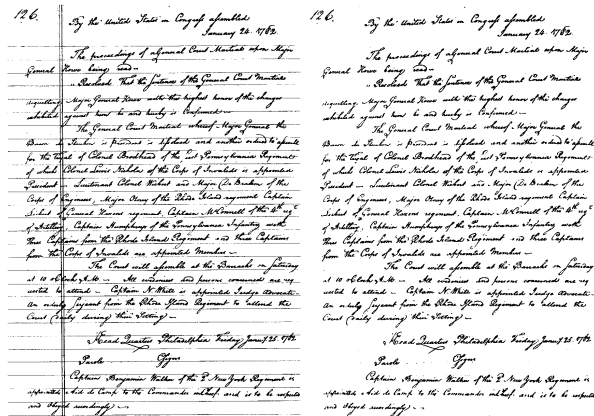 126.
By the United States in Congress assembled
January 24. 1782.
The proceedings of a General Court Martial upon Major
General Howe being read—
Resolved That the Sentence of the General Court Martial
acquitting Major General Howe with the highest honor of the charges
exhibited against him be and hereby is Confirmed—
The General Court Martial whereof Major General the
Baron de is President is dissolved and another ordered to assemble
for the Tryal of Colonel Brodhead of the 1st Pennsylvania Regiment
of which Colonel Lewis Nichola of the Corps of Invalids is appointed
President— Lieutenant Colonel and Major De of the
Corps of Engineers, Major Olney of the Rhode Island regiment Captain
of General Hazens regiment, Captain McConnell of the 4th regt
of Artillery, Captain Humphrey of the Pennsylvania Infantry with
three Captains from the Rhode Island Regiment and three Captains
from the Corps of Invalids are appointed Members—
The Court will assemble at the Barracks on Saturday
at 10 oClock A.M.— All evidences and persons concerned are req
uested to attend— Captain N. White is appointed Judge Advocate—
An orderly Serjeant from the Rhode Island Regiment to attend the
Court daily during their Sitting—
Head Quarters Philadelphia Friday Janury 25. 1782
Parole
Captain Benjamin Walker of the 2d New York Regiment is
appointed Aid de Camp to the Commander in Chief. and is to be respected
and Obeyed accordingly—
126.
By the United States in Congress assembled
January 24. 1782.
The proceedings of a General Court Martial upon Major
General Howe being read—
Resolved That the Sentence of the General Court Martial
acquitting Major General Howe with the highest honor of the charges
exhibited against him be and hereby is Confirmed—
The General Court Martial whereof Major General the
Baron de is President is dissolved and another ordered to assemble
for the Tryal of Colonel Brodhead of the 1st Pennsylvania Regiment
of which Colonel Lewis Nichola of the Corps of Invalids is appointed
President— Lieutenant Colonel and Major De of the
Corps of Engineers, Major Olney of the Rhode Island regiment Captain
of General Hazens regiment, Captain McConnell of the 4th regt
of Artillery, Captain Humphrey of the Pennsylvania Infantry with
three Captains from the Rhode Island Regiment and three Captains
from the Corps of Invalids are appointed Members—
The Court will assemble at the Barracks on Saturday
at 10 oClock A.M.— All evidences and persons concerned are req
uested to attend— Captain N. White is appointed Judge Advocate—
An orderly Serjeant from the Rhode Island Regiment to attend the
Court daily during their Sitting—
Head Quarters Philadelphia Friday Janury 25. 1782
Parole
Captain Benjamin Walker of the 2d New York Regiment is
appointed Aid de Camp to the Commander in Chief. and is to be respected
and Obeyed accordingly—